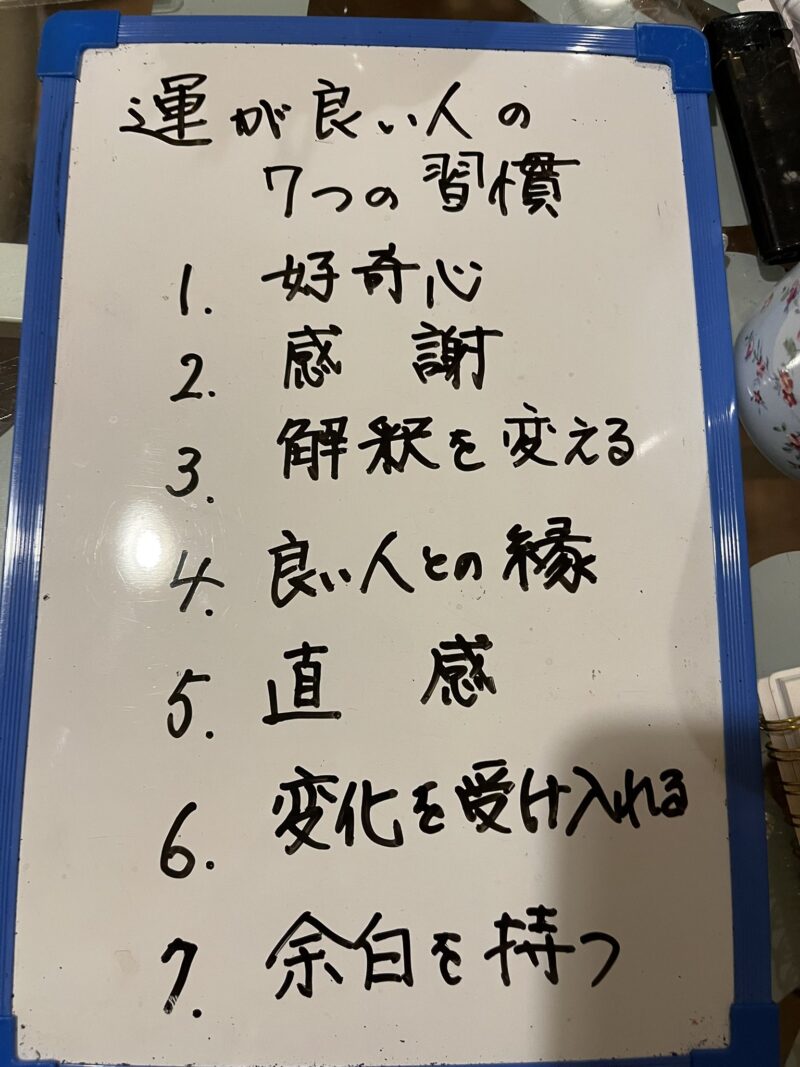 運が良い人の
7つの習慣
1. 好奇心
2. 感謝
3. 解釈を変える
4. 良い人との縁
5. 直感
6. 変化を受け入れる
7. 余白を持つ